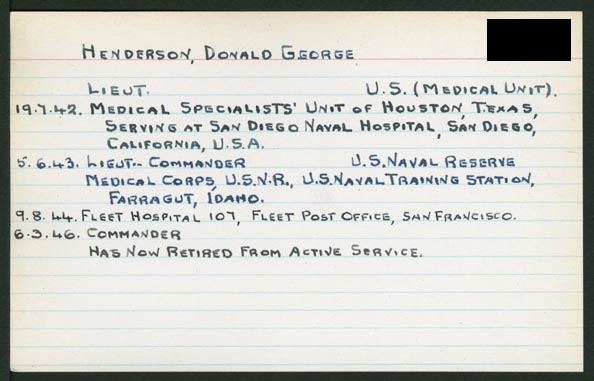 HENDERSON, DONALD GEORGE
LIEUT. U.S. (MEDICAL UNIT).
19.7.42. MEDICAL SPECIALISTS' UNIT OF HOUSTON, TEXAS,
SERVING AT SAN DIEGO NAVAL HOSPITAL, SAN DIEGO,
CALIFORNIA, U.S.A.
5.6.43. LIEUT.-COMMANDER U.S. NAVAL RESERVE
MEDICAL CORPS, U.S.N.R., U.S. NAVAL TRAINING STATION,
FARRAGUT, IDAHO.
9.8.44. FLEET HOSPITAL 107, FLEET POST OFFICE, SAN FRANCISCO.
6.3.46. COMMANDER
HAS NOW RETIRED FROM ACTIVE SERVICE.